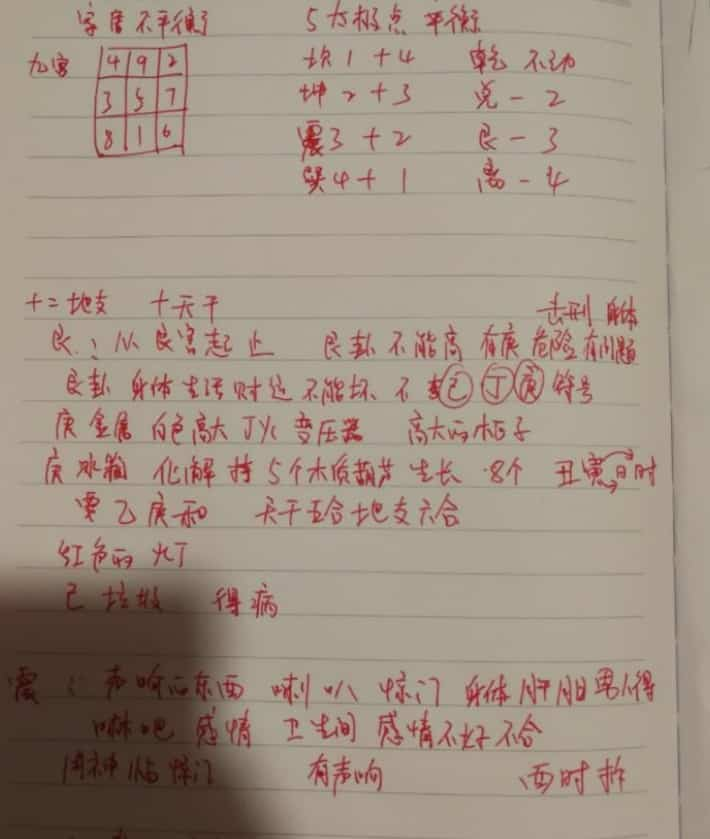 字 不平衡 5 太极点 平衡
九宫 4 9 2 坎 1 + 4 乾 不动
3 5 7 坤 2 + 3 兑 - 2
8 1 6 震 3 + 2 艮 - 3
巽 4 + 1 离 - 4
十二地支 十天干 击刑 身体
艮：从艮宫起 止 艮卦 不能高 有庚 危险 有问题
艮卦 身体 生活 财运 不能坏 不 己 丁 庚 符号
庚 金属 白色高大 丁火 变压器 高大的柜子
庚 冰箱 化解 持 5个木质葫芦 生长 8个 丑寅日时
要 乙庚和 天干五合 地支六合
红色的 火丁
己 垃圾 得病
震：声响的东西 喇叭 惊门 身体 肝胆 男人得
感情 卫生间 感情不好 不合
惊门 有声响 酉时 拆